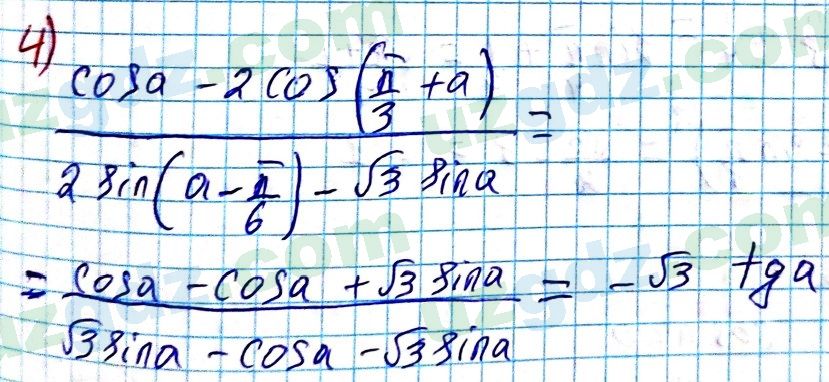 4)
cos a - 2 cos(π/3 + a)
——————————————— =
2 sin(a - π/6) - √3 sin a
= (cos a - cos a + √3 sin a)/(√3 sin a - cos a - √3 sin a) = -√3 tg a
uzgdz.com